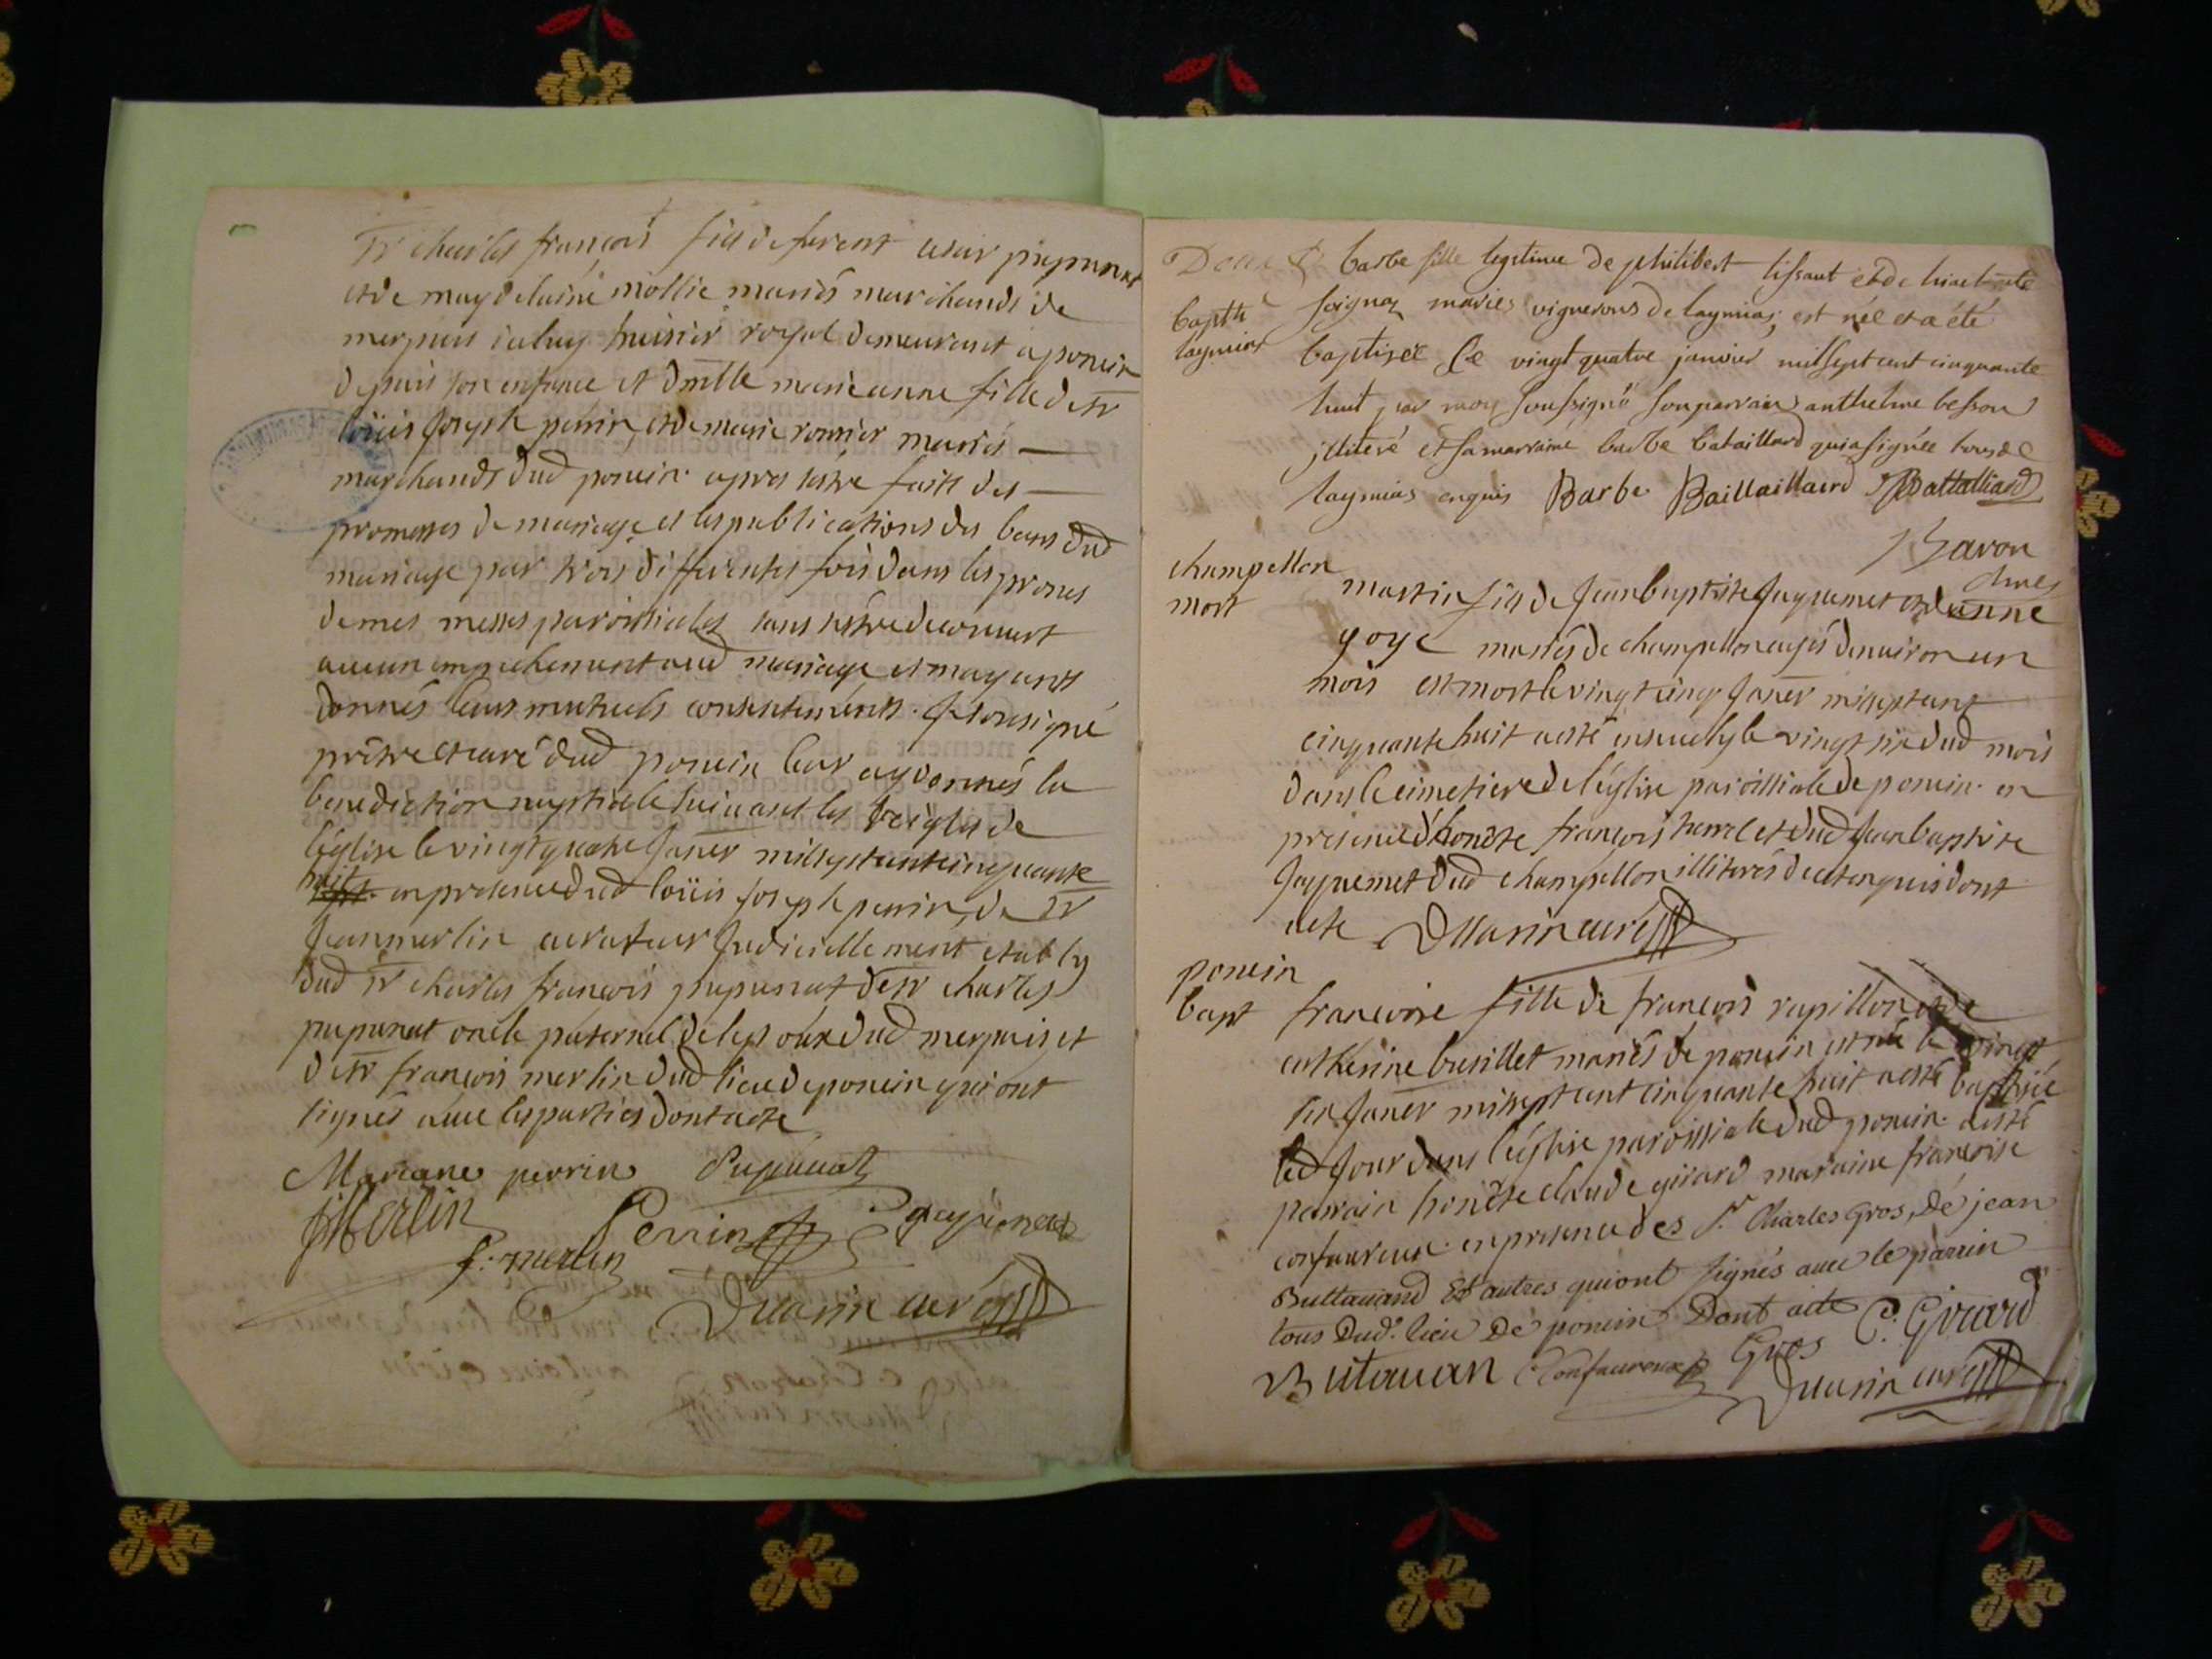 Sr charles françois fils de furent cesar pupunat
et de magdelaine mollie mariés marchands de
merpuis iceluy huissier royal demeurant a poncin
depuis son enfance et dmlle marie anne fille de Sr
loüis joseph perrin, et de marie roussier mariés
marchands dud poncin apres sestre faits des
promesses de mariage et les publications des bans dud
mariage par trois differentes fois dans les prones
de mes messes paroissiales sans sestre decouvert
aucun empechement aud mariage et mayants
donnés leurs mutuels consentements. Je soussigné
prêtre et curé dud poncin leur ay donnés la
benediction nuptiale suivant les reigles de
l'église le vingt quatre Janer mil sept cent cinquante
huit en presence dud loüis joseph perrin, de Sr
Jean merlin curateur Judiciellement etably
dud Sr charles françois pupunat de Sr charles
pupunat oncle paternel de lepoux dud merpuis et
de Sr françois merlin dud lieu de poncin qui ont
signés avec les parties dont acte
Mariane perrin Pupunat
J Merlin Perrin pupunat
f. merlin
Duarin curé
barbe fille legitime de philibert lissaut et de
bapth soignoz mariés vignerons de laymias, est née et a été
laymias baptisée le vingt quatre janvier mil sept cent cinquante
huit par moy soussigné son parrain anthelme besson
illiteré et sa marraine barbe bataillard qui a signée tous de
laymias enquis Barbe Baillaillard Battalliard
Baron
champollon
mort martin fils de Jean baptiste Jaquemet et danne
goye mariés de champollon agés denviron un
mois est mort le vingt cinq Janer mil sept cent
cinquante huit a esté ensevely le vingt six dud mois
dans le cimetiere de l'église paroissiale de poncin en
presence d'honete françois et dud Jean baptiste
Jaquemet dud champollon illiterés de ce enquis dont
acte Duarin curé
poncin
bapt francoise fille de françois rapillon et de
catherine busillet mariés de poncin est née le vingt
six Janer mil sept cent cinquante huit a esté baptisée
led Jour dans l'église paroissiale dud poncin a esté
parrain honète claude girard maraine françoise
confavreux en presence des Sr Charles Gros, De jean
Buttavand Et autres qui ont signés avec le parrin
tous Dud. lieu De poncin Dont acte C. Girard
Butavan Confavreux Gros
Duarin curé